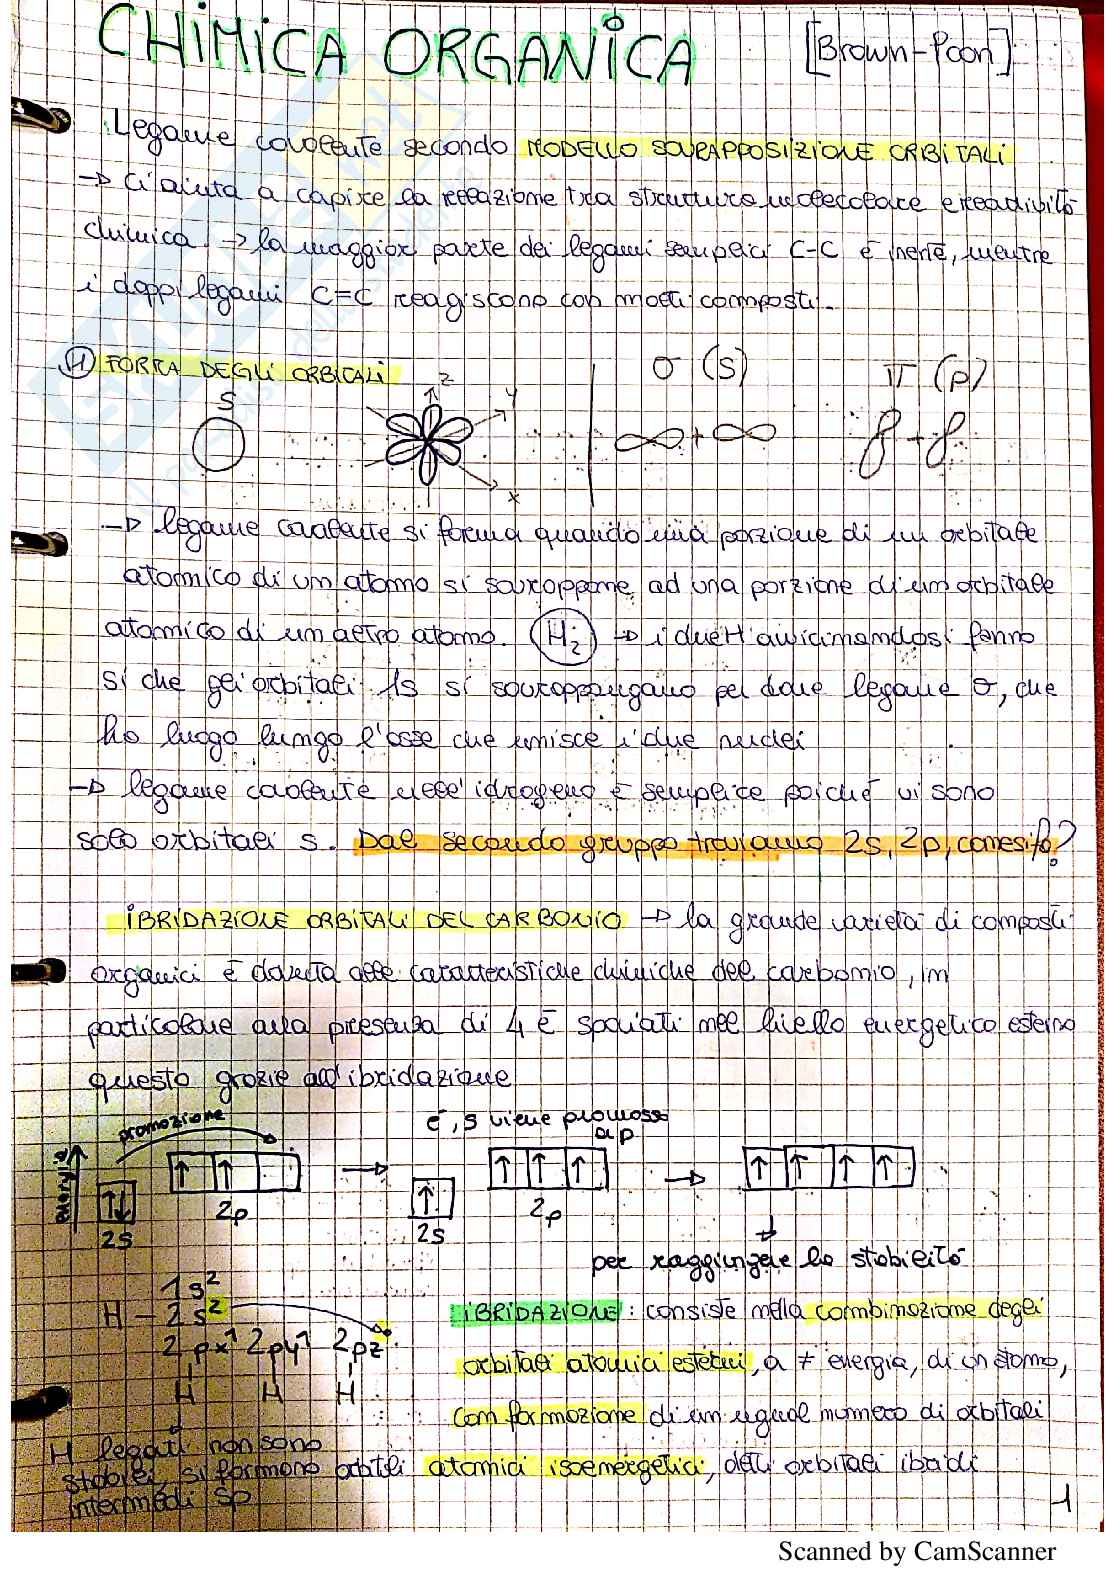 CHIMICA ORGANICA [Brown-Poon]
Legame covalente secondo MODELLO SOVRAPPOSIZIONE ORBITALI
→ Ci aiuta a capire la relazione tra struttura molecolare e reattività
chimica → la maggior parte dei legami semplici C-C è inerte, mentre
i doppi legami C=C reagiscono con molti composti.
FORMA DEGLI ORBITALI σ (s) π (p)
S z y x
+ +
→ legame covalente si forma quando una porzione di un orbitale
atomico di un atomo si sovrappone ad una porzione di un orbitale
atomico di un altro atomo. H2 → i due H avvicinandosi fanno
sì che gli orbitali 1s si sovrappongano per dare legame σ, che
ha luogo lungo l'asse che unisce i due nuclei
→ legame covalente nell'idrogeno è semplice poiché vi sono
solo orbitali s. Dal secondo gruppo troviamo 2s, 2p, come si fa?
IBRIDAZIONE ORBITALI DEL CARBONIO → la grande varietà di composti
organici è dovuta alle caratteristiche chimiche del carbonio, in
particolare alla presenza di 4 e⁻ spaiati nel livello energetico esterno
questo grazie all'ibridazione
promozione e⁻, s viene promosso
a p
energia
2s 2p → 2s 2p →
per raggiungere la stabilità
1s²
H - 2s²
2px¹ 2py¹ 2pz
H H H
H legati non sono
stabili, si formano orbitali
intermedi sp
IBRIDAZIONE: consiste nella combinazione degli
orbitali atomici esterni, a ≠ energia, di un atomo,
con formazione di un ugual numero di orbitali
atomici isoenergetici, detti orbitali ibridi
1
Scanned by CamScanner